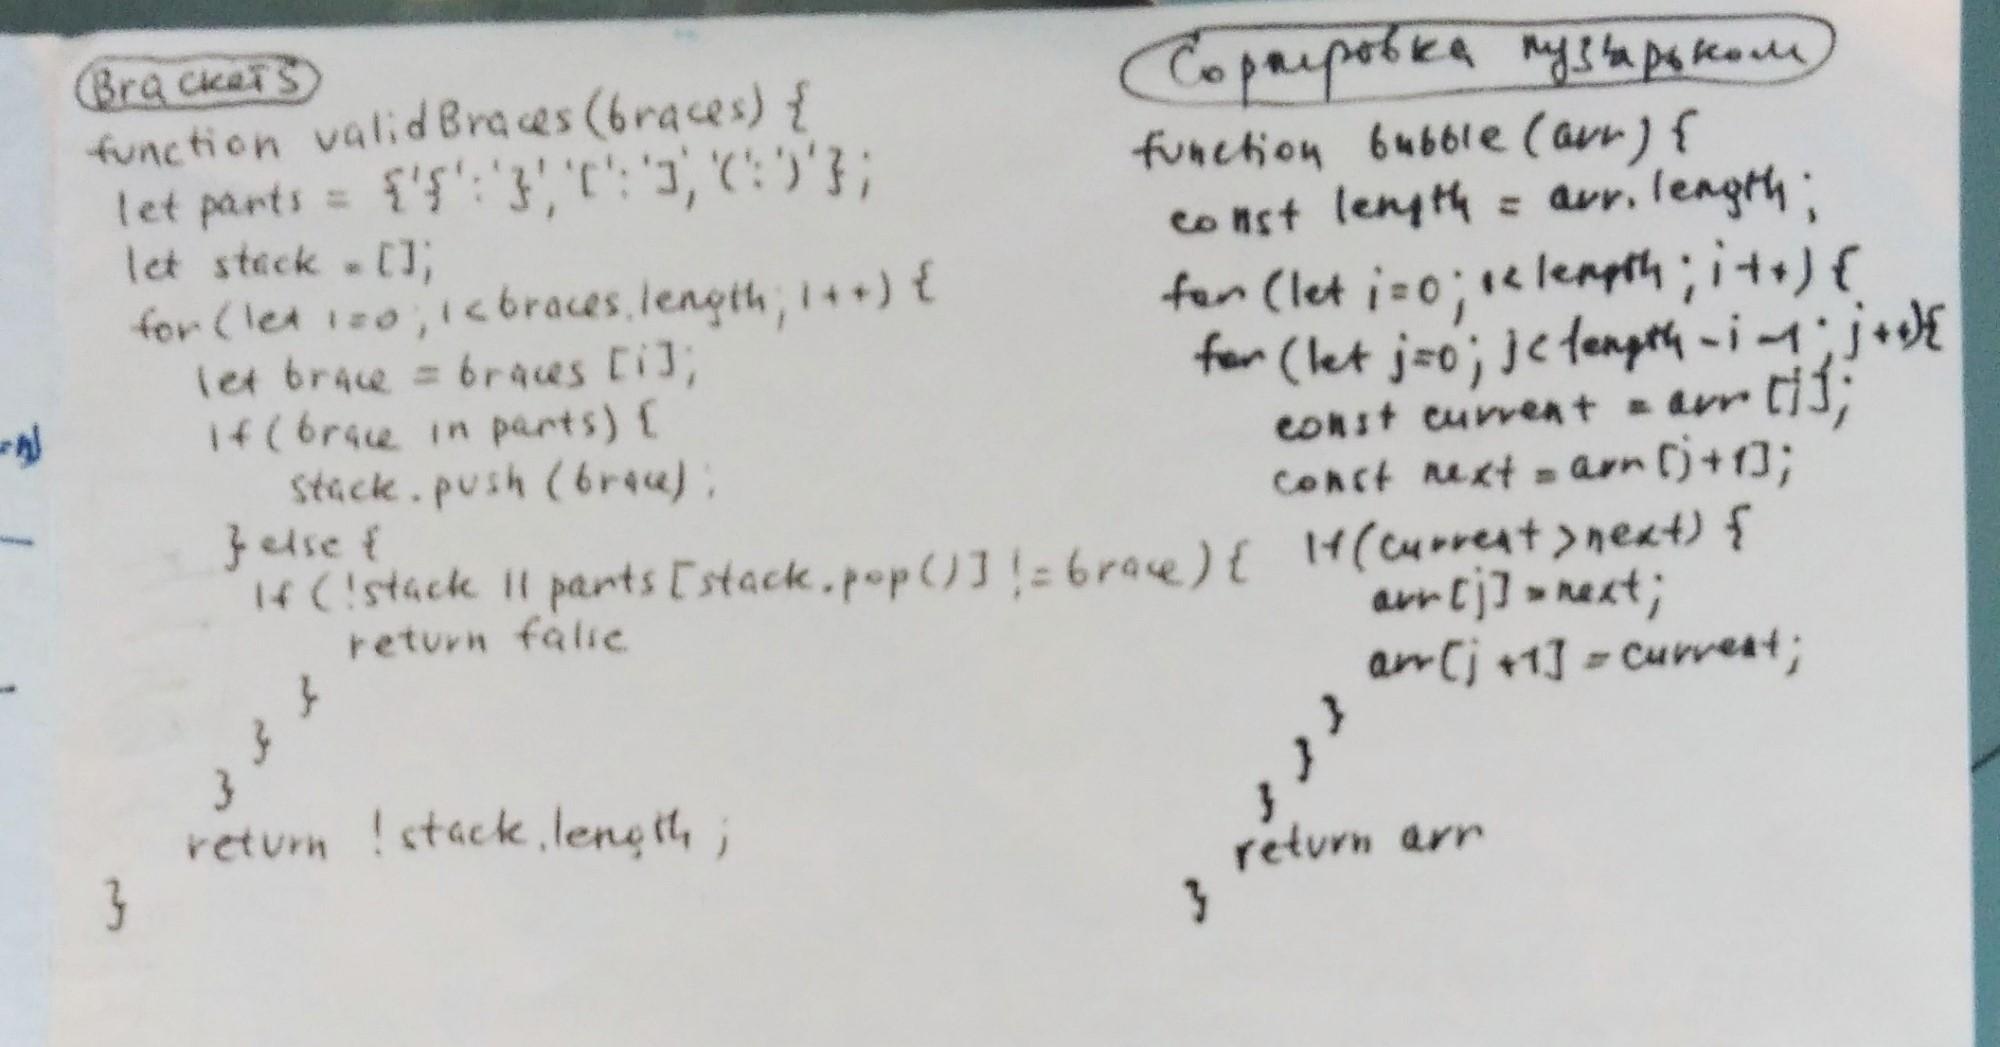 Brackets
function validBraces(braces) {
let parts = {'{':'}','[':']','(':')'};
let stack = [];
for(let i=0; i<braces.length; i++) {
let brace = braces [i];
if (brace in parts) {
stack.push (brace);
} else {
if (!stack || parts [stack.pop()] != brace) {
return false
}
}
}
return !stack.length;
}
Сортировка пузырьком
function bubble (arr) {
const length = arr.length;
for (let i=0; i<length; i++) {
for (let j=0; j<length-i-1; j++){
const current = arr [j];
const next = arr [j+1];
if (current > next) {
arr [j] = next;
arr [j+1] = current;
}
}
}
return arr
}